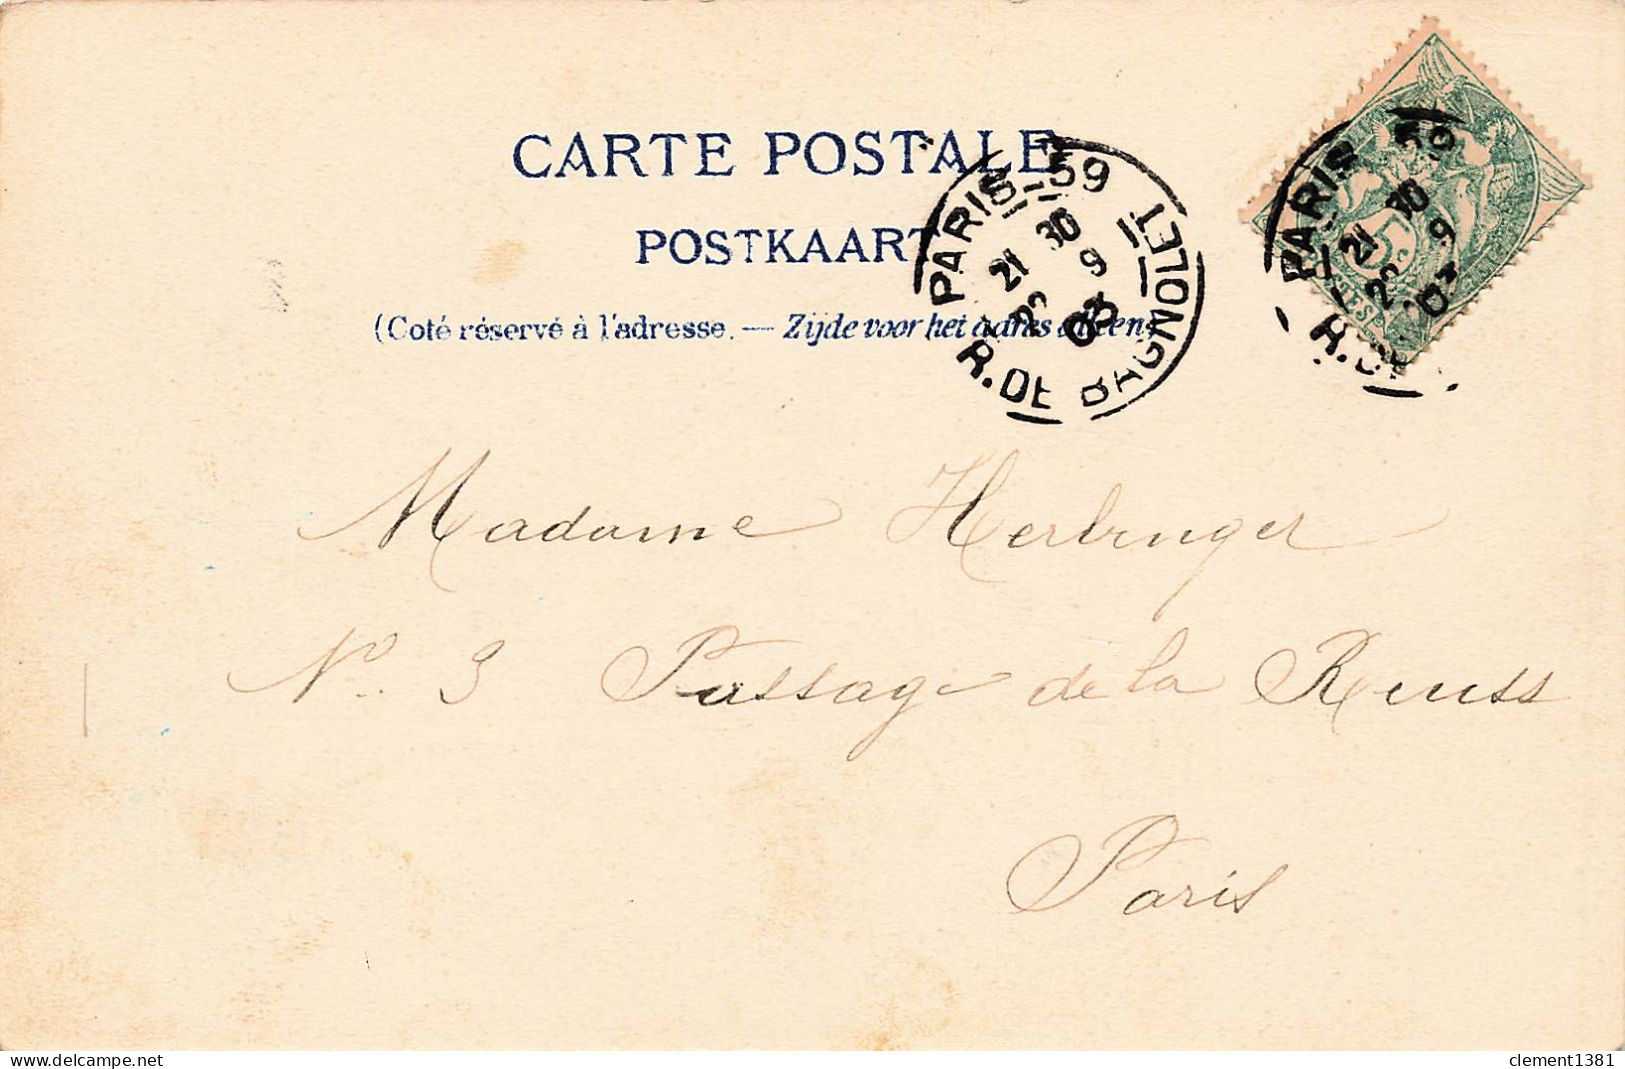 CARTE POSTALE
POSTKAART
(Coté réservé à l'adresse. — Zijde voor het adres alleen
PARIS - 59
21 30
22 9
03
R. DE BAGNOLET
PARIS
21 30
22 9
03
R. DE
5
Madame Herbinger
N° 3 Passage de la Reuss
Paris
clement1381